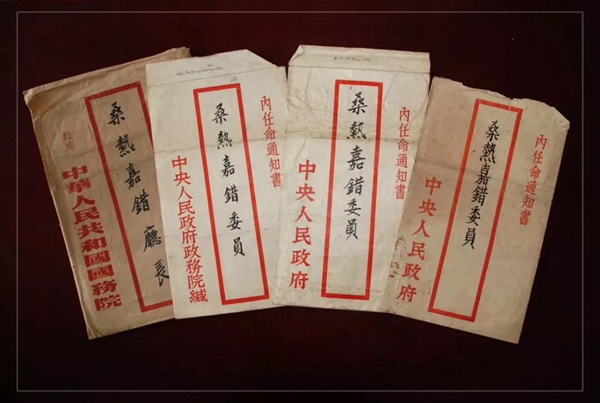 桑熱嘉錯廳長
中華人民共和國國務院
內任命通知書
桑熱嘉錯委員
中央人民政府政務院緘
內任命通知書
桑熱嘉錯委員
中央人民政府
內任命通知書
桑熱嘉錯委員
中央人民政府